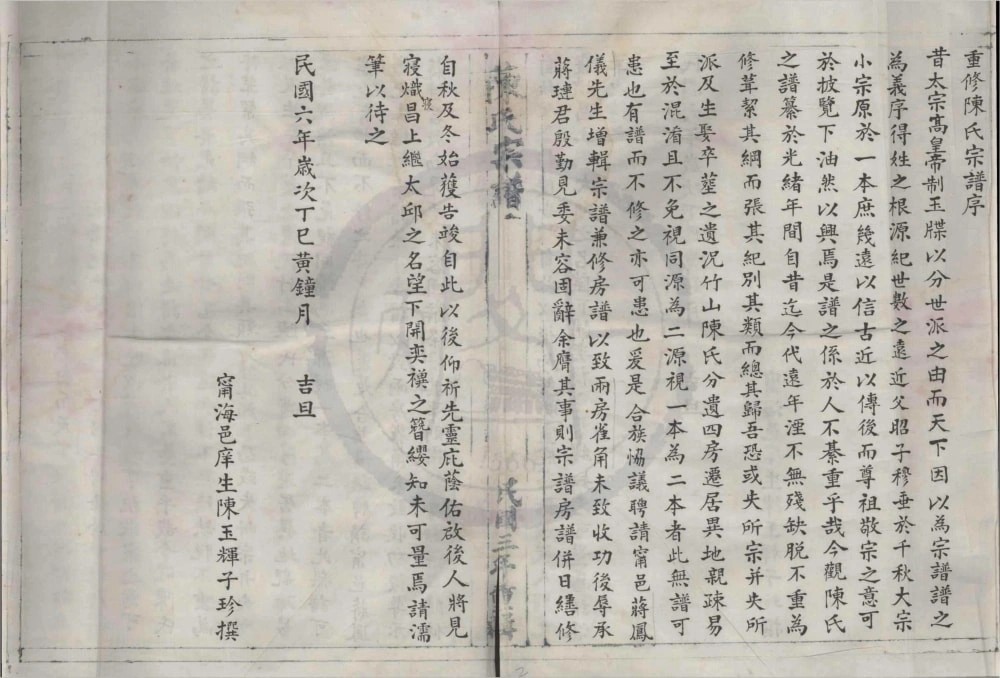 重修陳氏宗譜序
昔太宗高皇帝制玉牒以分世派之由而天下因以為宗譜譜之
為義序得姓之根源紀世數之遠近父昭子穆垂於千秋大宗
小宗原於一本庶幾遠以信古近以傳後而尊祖敬宗之意可
於披覽下油然以興焉是譜之係於人不綦重乎哉今觀陳氏
之譜纂於光緒年間自昔迄今代遠年湮不無殘缺脫不重為
修葺絜其綱而張其紀別其類而總其歸吾恐或失所宗并失所
派及生娶卒塟之遺況竹山陳氏分遺四房遷居異地親疎易
至於混淆且不免視同源為二源視一本為二本者此無譜可
患也有譜而不修之亦可患也爰是合族恊議聘請甯邑蔣鳳
儀先生增輯宗譜兼修房譜以致兩房雀角未致收功後辱承
蔣璉君殷勤見委未容固辭余膺其事則宗譜房譜併日繕修
陳氏宗譜
民國三年重修
自秋及冬始獲告竣自此以後仰祈先靈庇蔭佑啟後人將見
寢熾寢昌上繼太邱之名望下開奕禩之簪纓知未可量焉請濡
筆以待之
民國六年嵗次丁巳黃鐘月 吉旦
甯海邑庠生陳玉輝子珍撰
2